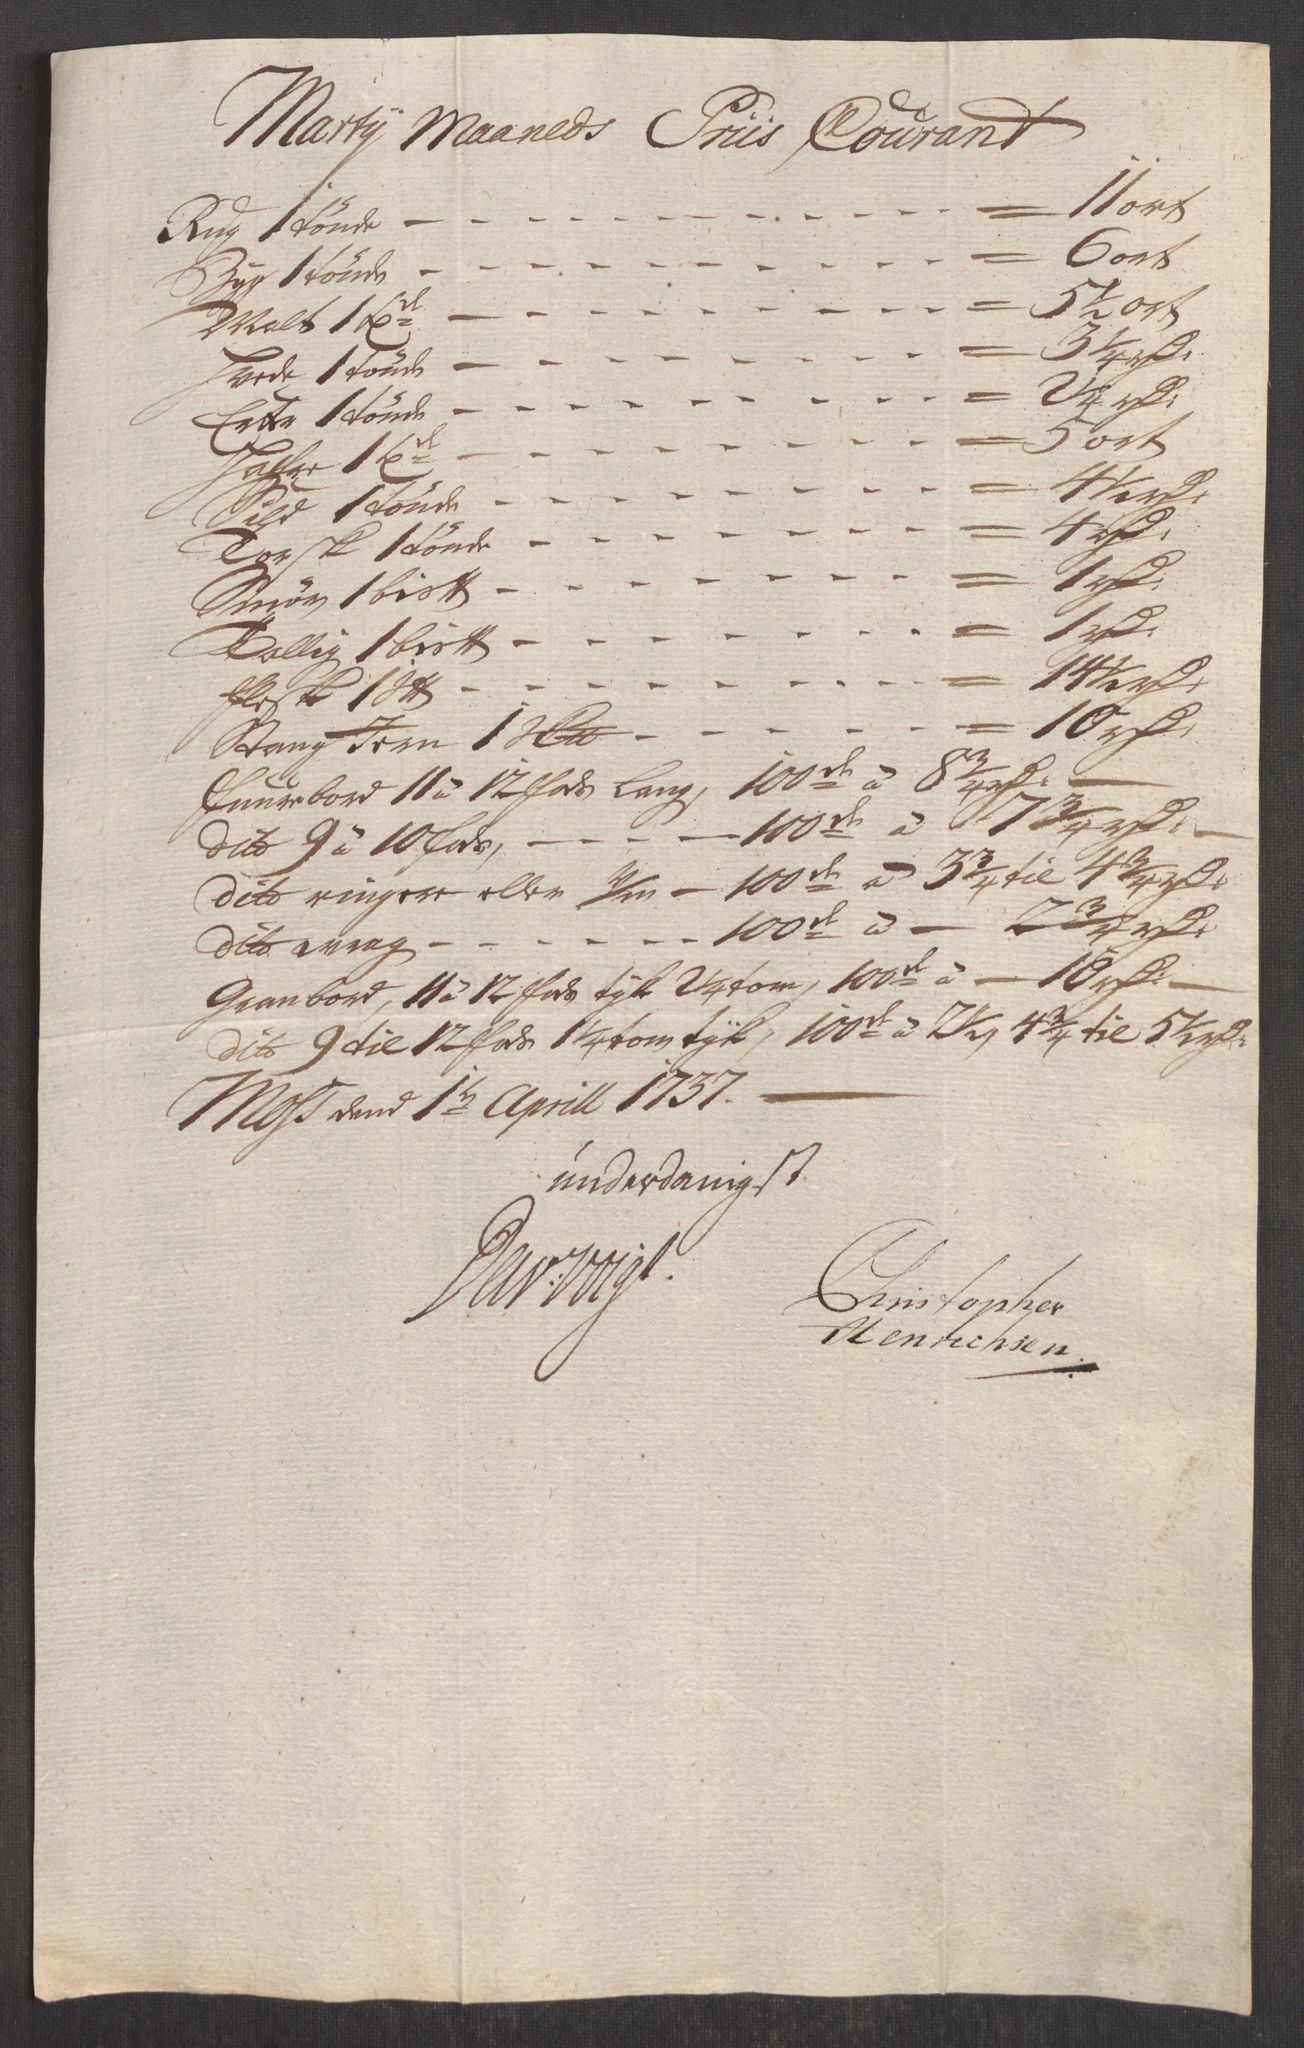 Martÿ Maaneds Priis Courant
Rug 1 tönde - - - = 11 ort
Byg 1 tönde - - - = 6 ort
Malt 1 td - - - = 5½ ort
Hvede 1 tönde - - - = 3¼ rd:
Erter 1 tönde - - - = 2¼ rd:
Hafre 1 td - - - = 5 ort
Sild 1 tönde - - - = 4½ rd:
Torsk 1 tönde - - - = 4 rd:
Smör 1 bis℔ - - - = 1 rd:
Tallig 1 bis℔ - - - = 1 rd:
Flesk 1 s℔ - - - = 14½ rd:
Stang Jern 1 s℔ - - - = 10 rd:
Fuurebord 11 à 12 fods lang, 100de à 8¾ rd:
dito 9 à 10 fods, - - - 100de à 7¾ rd:
dito ringere eller - 100de à 3¾ til 4¾ rd:
dito vrag - - - 100de à - 2¾ rd:
Granbord, 11 à 12 fods tyk 2¼ tom, 100de à - 10 rd:
dito 9 til 12 fods 1¼ tom tÿk, 100de à 2½, 4¾ til 5½ rd:
Moss dend 1te Aprill 1737.
underdanigst
Dav: Vogt.
Christopher
Henrichsen.